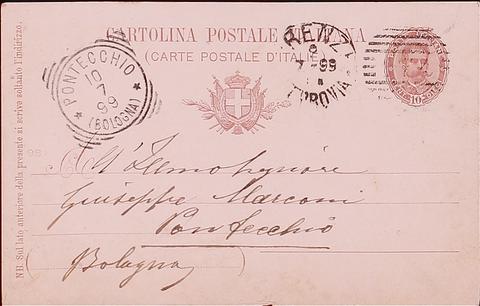 CARTOLINA POSTALE ITALIANA
(CARTE POSTALE D'ITALIE)
PONTECCHIO
10
7
99
(BOLOGNA)
FIRENZE
99
FERROVIA
10
All' Illmo Signore
Giuseppe Marconi
Pontecchio
(Bologna)
NB. Sul lato anteriore della presente si scrive soltanto l'indirizzo.